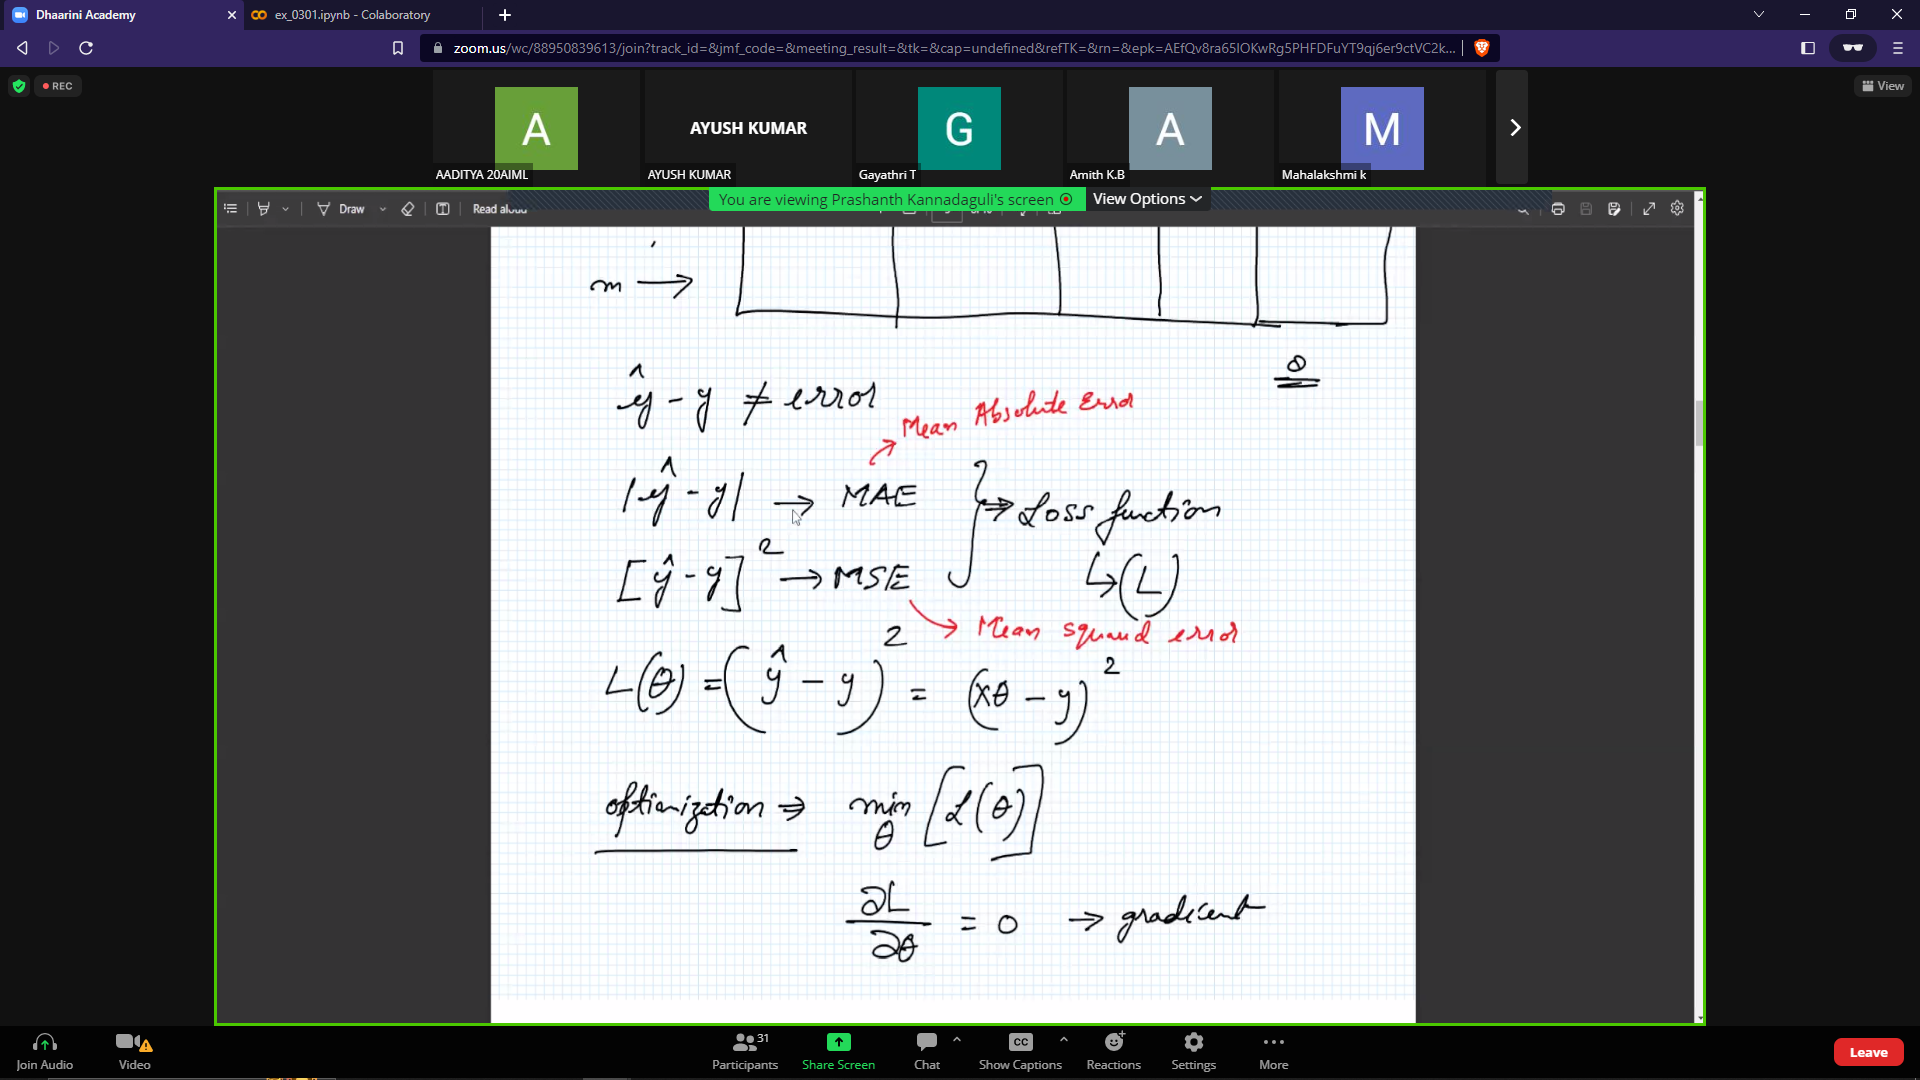 Dhaarini Academy
ex_0301.ipynb - Colaboratory
zoom.us/wc/88950839613/join?track_id=&jmf_code=&meeting_result=&tk=&cap=undefined&refTK=&rn=&epk=AEfQv8ra65IOKwRg5PHFDFuYT9qj6er9ctVC2k...
REC
View
A
AYUSH KUMAR
G
A
M
AADITYA 20AIML
AYUSH KUMAR
Gayathri T
Amith K.B
Mahalakshmi k
You are viewing Prashanth Kannadaguli's screen
View Options
Draw
Read aloud
m →
ŷ - y ≠ error
Mean Absolute Error
|ŷ - y| → MAE
⇒ Loss function
[ŷ - y]² → MSE
↳ (L)
Mean squared error
L(θ) = (ŷ - y)² = (xθ - y)²
optimization ⇒ min θ [L(θ)]
∂L/∂θ = 0 → gradient
Join Audio
Video
Participants
31
Share Screen
Chat
CC
Show Captions
Reactions
Settings
More
Leave